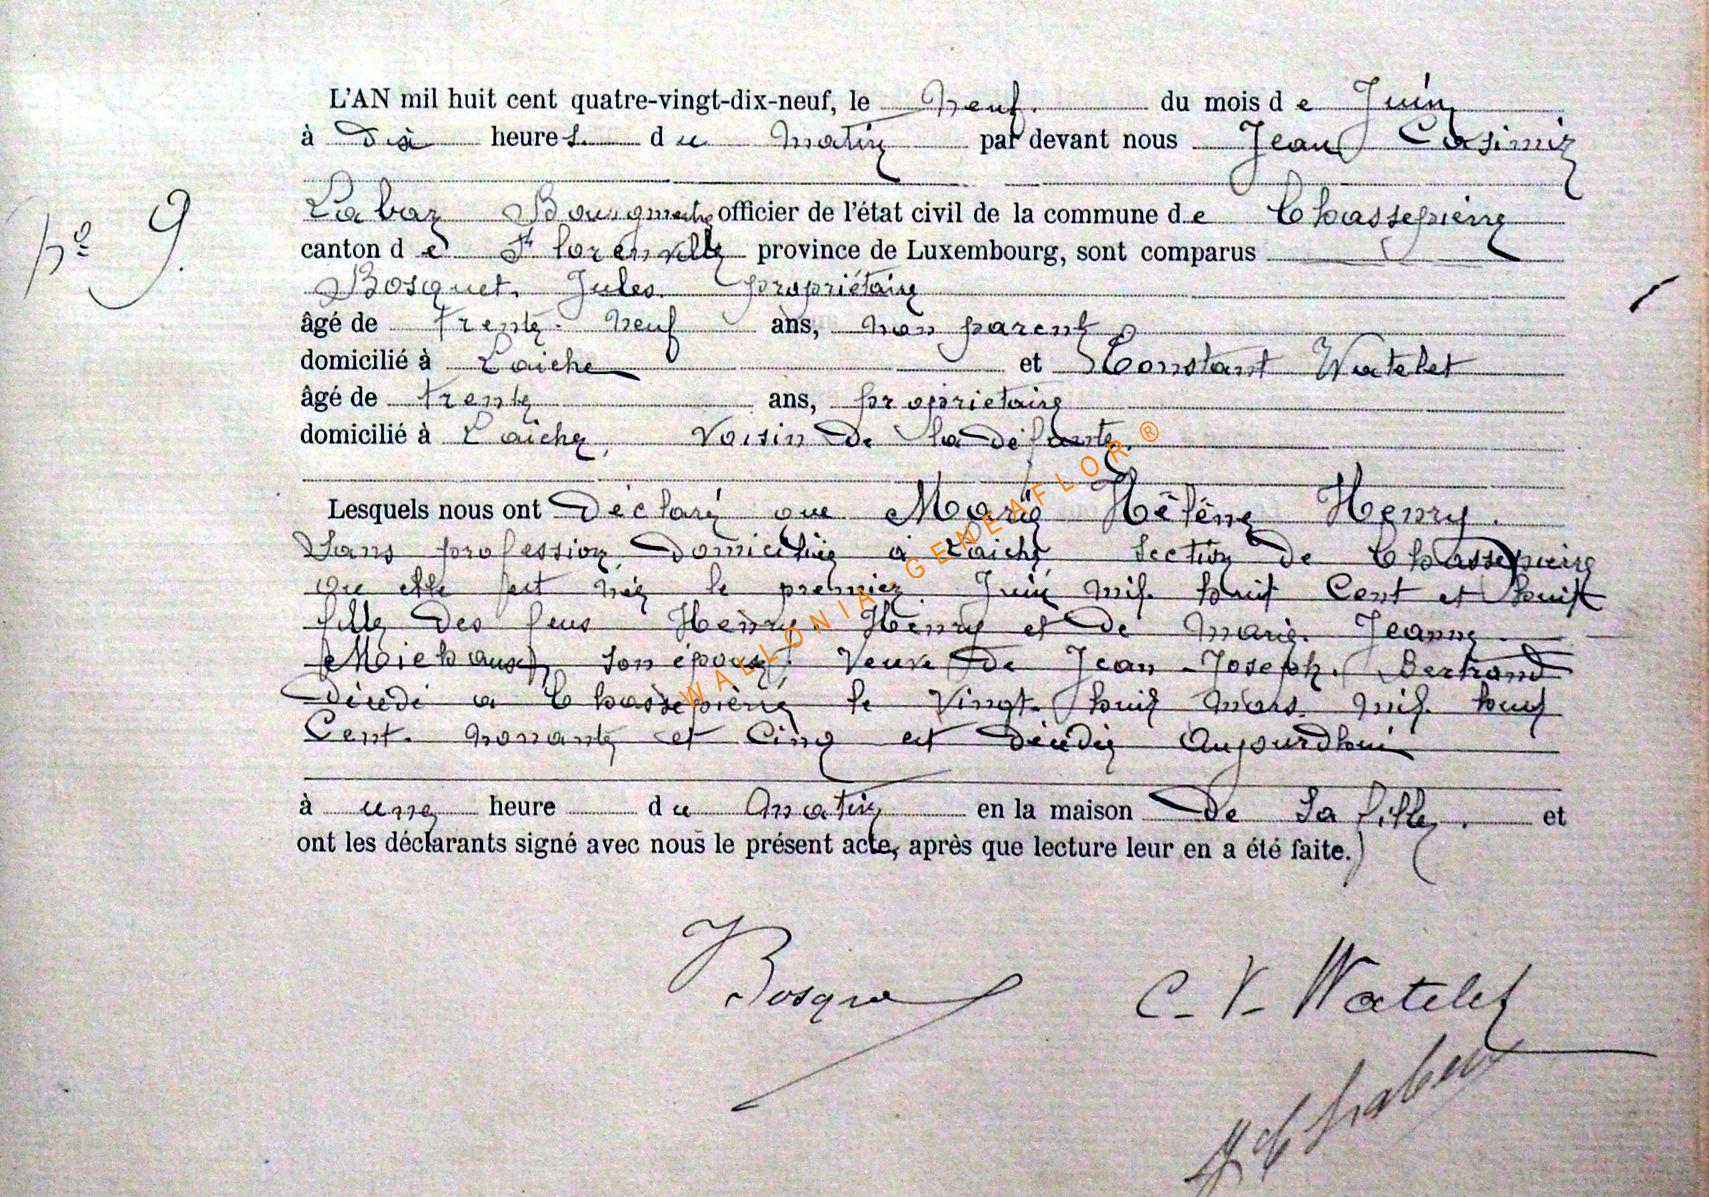 L'AN mil huit cent quatre-vingt-dix-neuf, le neuf. du mois de Juin
à dix heures. du matin par devant nous Jean Casimir
Labar Bourgmestre officier de l'état civil de la commune de Chassepierre
canton de Florenville province de Luxembourg, sont comparus
N° 9.
Bosquet. Jules. propriétaire
âgé de trente. neuf ans, non parent
domicilié à Laiche et Constant Watelet
âgé de trente ans, proprietaire
domicilié à Laiche, voisin de la défunte.
Lesquels nous ont déclaré que Marie Hélène Henry.
Sans profession domiciliée à Laiche section de Chassepierre
ou elle fut née le premier Juin mil huit Cent et huit
fille des feus Henry. Henry et de Marie. Jeanne.
Michaux, son épouse. Veuve de Jean-Joseph. Bertrand
décédé a Chassepierre le Vingt-huit mars mil huit
Cent. nonante et Cinq est décédée Aujourdhui
à une heure du matin en la maison de sa fille. et
ont les déclarants signé avec nous le présent acte, après que lecture leur en a été faite.
Bosque
C-V-Watelet
WALLONIA-GENEAFLOR ®